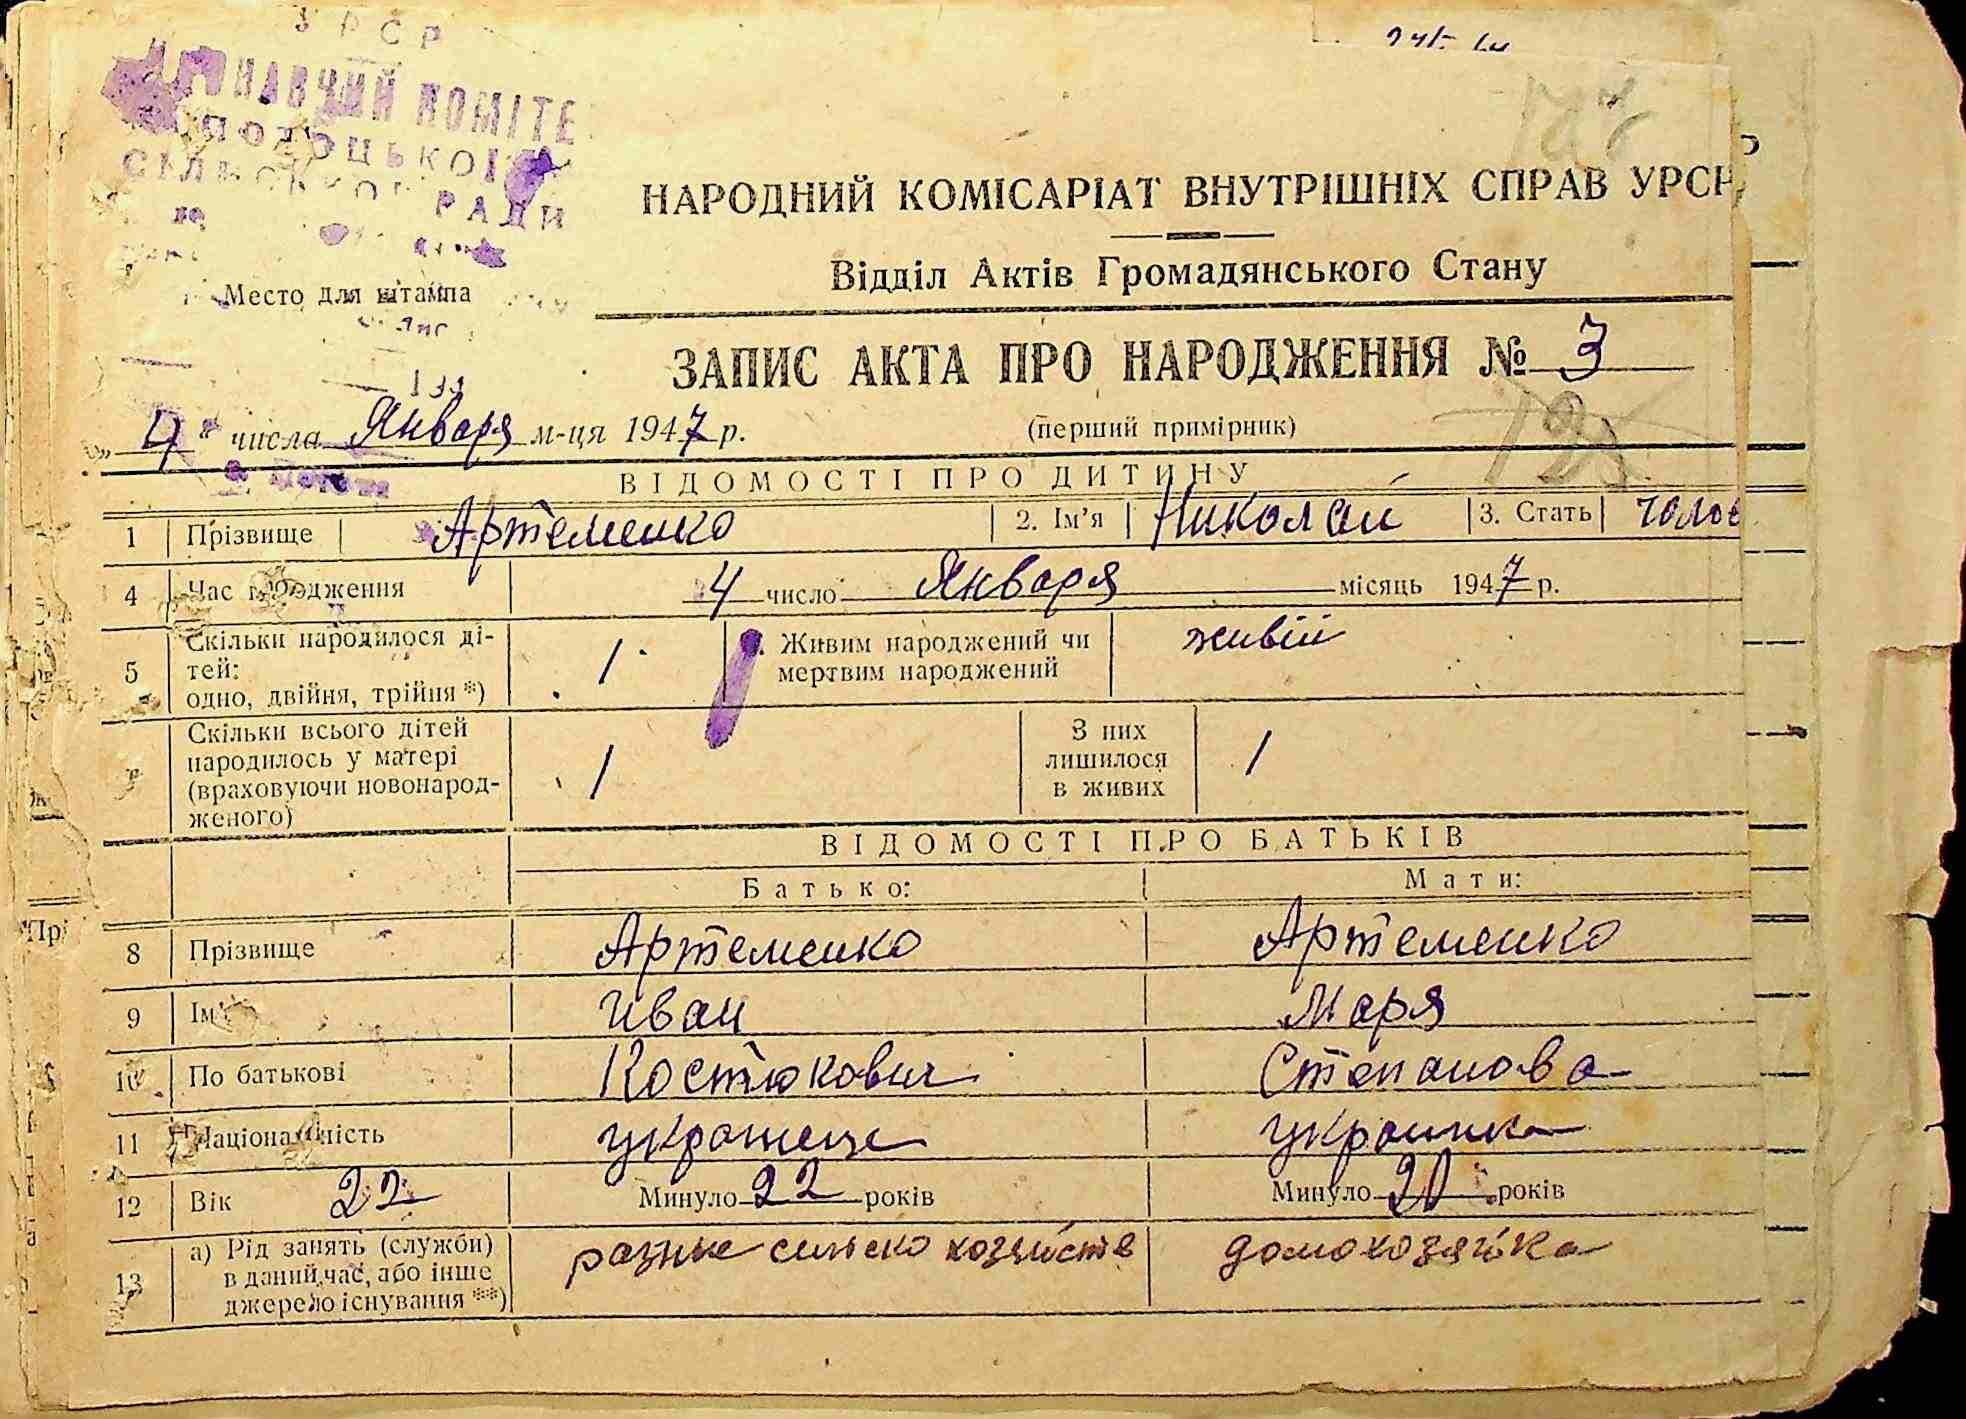 УРСР
КОМІТЕ
СІЛЬСЬКОЇ РАДИ
Место для штампа
НАРОДНИЙ КОМІСАРІАТ ВНУТРІШНІХ СПРАВ УРСР
Відділ Актів Громадянського Стану
ЗАПИС АКТА ПРО НАРОДЖЕННЯ № 3
„4" числа Января м-ця 1947 р.
(перший примірник)
ВІДОМОСТІ ПРО ДИТИНУ
1 Прізвище Артеменко 2. Ім'я Николай 3. Стать
4 Час народження 4 число Января місяць 1947 р.
5 Скільки народилося ді-
тей:
одно, двійня, трійня *) 1
Живим народжений чи
мертвим народжений живій
Скільки всього дітей
народилось у матері
(враховуючи новонарод-
женого) 1
З них
лишилося
в живих 1
ВІДОМОСТІ ПРО БАТЬКІВ
Батько: Мати:
8 Прізвище Артеменко Артеменко
9 Ім'я Иван Маря
10 По батькові Костюкович Степанова
11 Національність украинец украинка
12 Вік 22 Минуло 22 років Минуло 20 років
13 а) Рід занять (служби)
в даний час, або інше
джерело існування **)
разные сельско хозяйств домохозяйка